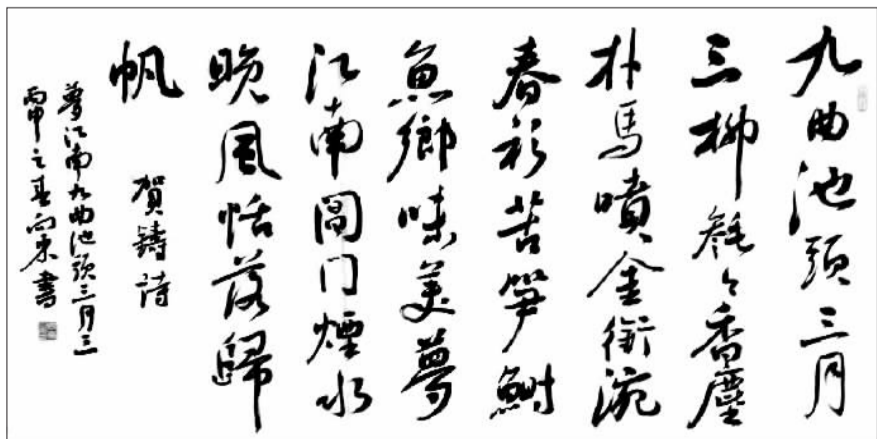 九曲池頭三月
三柳毿々香塵
扑馬噴金銜涴
春衫苦笋鰣
魚鄉味美夢
江南閶门煙水
晚風恬落歸
帆
賀鑄詩
夢江南九曲池頭三月三
丙申之春向東書